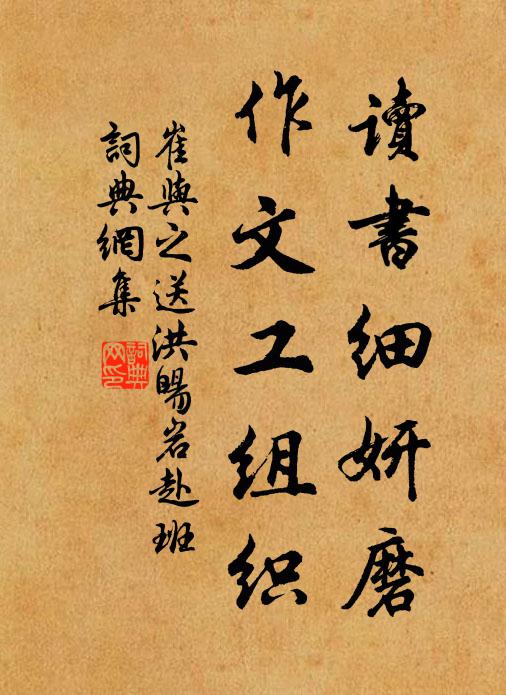 讀書細妍磨
作文工组织
崔與之送洪暘岩赴班
詞典網集
詞典網印